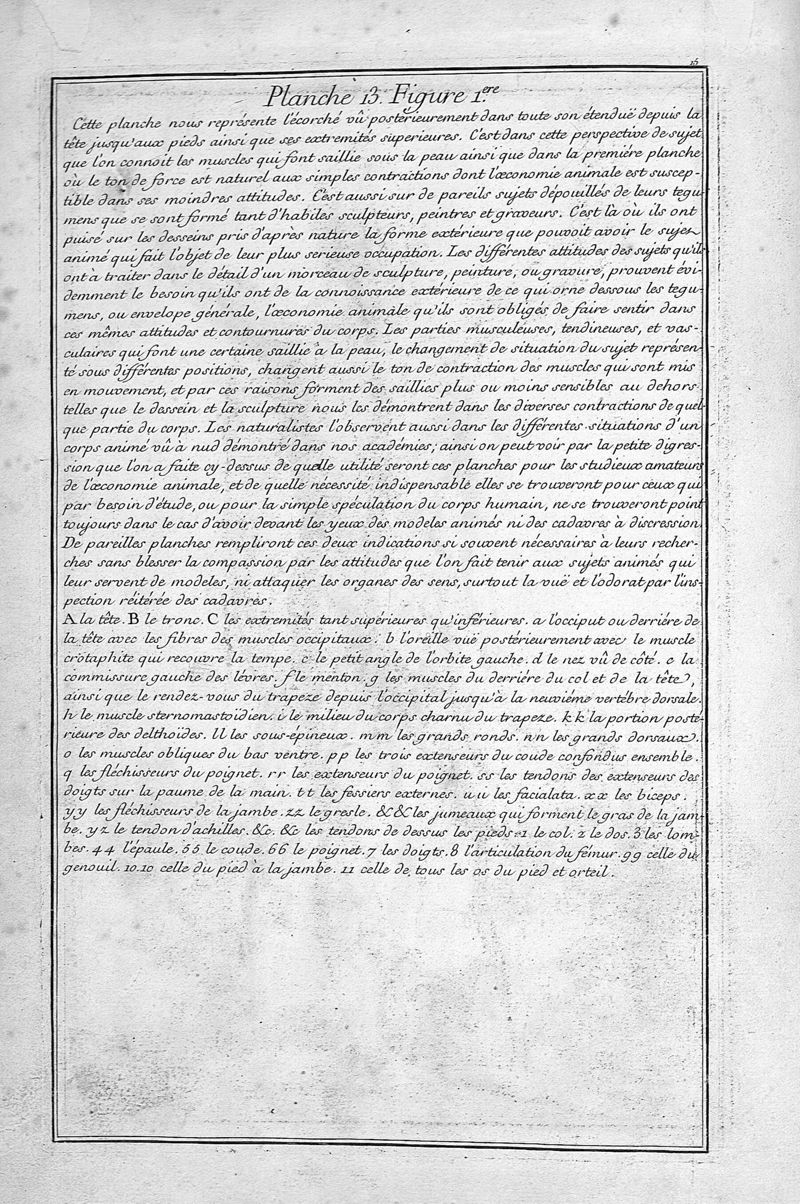 15
Planche 13. Figure 1.ere
Cette planche nous représente l'écorché vû postérieurement dans toute son étenduë depuis la
tête jusqu'aux pieds ainsi que ses extremités superieures. C'est dans cette perspective de sujet
que l'on connoit les muscles qui font saillie sous la peau ainsi que dans la premiére planche
où le ton de force est naturel aux simples contractions dont l'œconomie animale est suscep-
tible dans ses moindres attitudes. C'est aussi sur de pareils sujets dépouillés de leurs tegu-
mens que se sont formé tant d'habiles sculpteurs, peintres et graveurs. C'est là où ils ont
puisé sur les desseins pris d'après nature la forme extérieure que pouvoit avoir le sujet
animé qui fait l'objet de leur plus serieuse occupation. Les différentes attitudes des sujets qu'ils
ont à traiter dans le détail d'un morceau de sculpture, peinture, ou gravure, prouvent évi-
demment le besoin qu'ils ont de la connoissance extérieure de ce qui orne dessous les tegu-
mens, ou envelope générale, l'œconomie animale qu'ils sont obligés de faire sentir dans
ces mêmes attitudes et contournures du corps. Les parties musculeuses, tendineuses, et vas-
culaires qui font une certaine saillie à la peau, le changement de situation du sujet représen-
té sous différentes positions, changent aussi le ton de contraction des muscles qui sont mis
en mouvement, et par ces raisons forment des saillies plus ou moins sensibles au dehors
telles que le dessein et la sculpture nous les démontrent dans les diverses contractions de quel-
que partie du corps. Les naturalistes l'observent aussi dans les différentes situations d'un
corps animé vû à nud démontré dans nos académies; ainsi on peut voir par la petite digres-
sion que l'on a faite cy-dessus de quelle utilité seront ces planches pour les studieux amateurs
de l'œconomie animale, et de quelle nécessité indispensable elles se trouveront pour ceux qui
par besoin d'étude, ou pour la simple spéculation du corps humain, ne se trouveront point
toujours dans le cas d'avoir devant les yeux des modeles animés ni des cadavres à discression.
De pareilles planches rempliront ces deux indications si souvent nécessaires à leurs recher-
ches sans blesser la compassion par les attitudes que l'on fait tenir aux sujets animés qui
leur servent de modeles, ni attaquer les organes des sens, surtout la vuë et l'odorat par l'ins-
pection réitérée des cadavres.
A la tête. B le tronc. C les extremités tant supérieures qu'inférieures. a l'occiput ou derriére de
la tête avec les fibres des muscles occipitaux. b l'oreille vuë postérieurement avec le muscle
crotaphite qui recouvre la tempe. c le petit angle de l'orbite gauche. d le nez vû de côté. e la
commissure gauche des lévres. f le menton. g les muscles du derriére du col et de la tête,
ainsi que le rendez-vous du trapeze depuis l'occipital jusqu'à la neuviéme vertébre dorsale.
h le muscle sternomastoïdien. i le milieu du corps charnu du trapeze. k k la portion posté-
rieure des delthoïdes. l l les sous-épineux. m m les grands ronds. n n les grands dorsaux.
o les muscles obliques du bas ventre. p p les trois extenseurs du coude confondus ensemble.
q les fléchisseurs du poignet. r r les extenseurs du poignet. s s les tendons des extenseurs des
doigts sur la paume de la main. t t les fessiers externes. u u les facialata. x x les biceps.
y y les fléchisseurs de la jambe. z z le gresle. & & les jumeaux qui forment le gras de la jam-
be. y z le tendon d'achilles. &c. &c les tendons de dessus les pieds. 1 le col. 2 le dos. 3 les lom-
bes. 4 4 l'épaule. 5 5 le coude. 6 6 le poignet. 7 les doigts. 8 l'articulation du fémur. 9 9 celle du
genouil. 10. 10 celle du pied à la jambe. 11 celle de tous les os du pied et orteil.